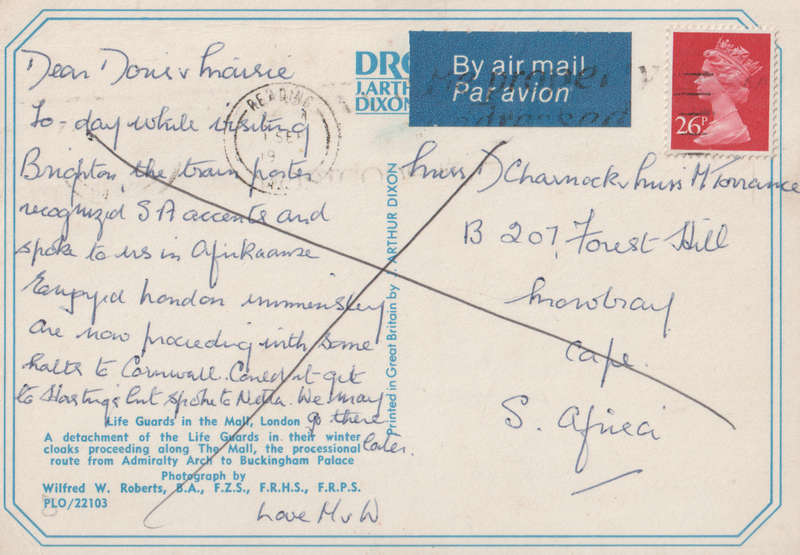 Dear Doris v Maisie
To-day while visiting
Brighton, the train porter
recognized S A accents and
spoke to us in Afrikaanse
Enjoyed London immensley
are now proceeding with some
halts to Cornwall. Couldn't get
to Hastings but spoke to Netta. We may
go there
later.
Love M v W
Life Guards in the Mall, London
A detachment of the Life Guards in their winter
cloaks proceeding along The Mall, the processional
route from Admiralty Arch to Buckingham Palace
Photograph by
Wilfred W. Roberts, B.A., F.Z.S., F.R.H.S., F.R.P.S.
PLO/22103
J. ARTHUR
DIXON
By air mail
Par avion
READING
26P
Printed in Great Britain by J. ARTHUR DIXON
Miss D Charnock v Miss M Torrance
B 207, Forest Hill
Mowbray
Cape
S. Africa